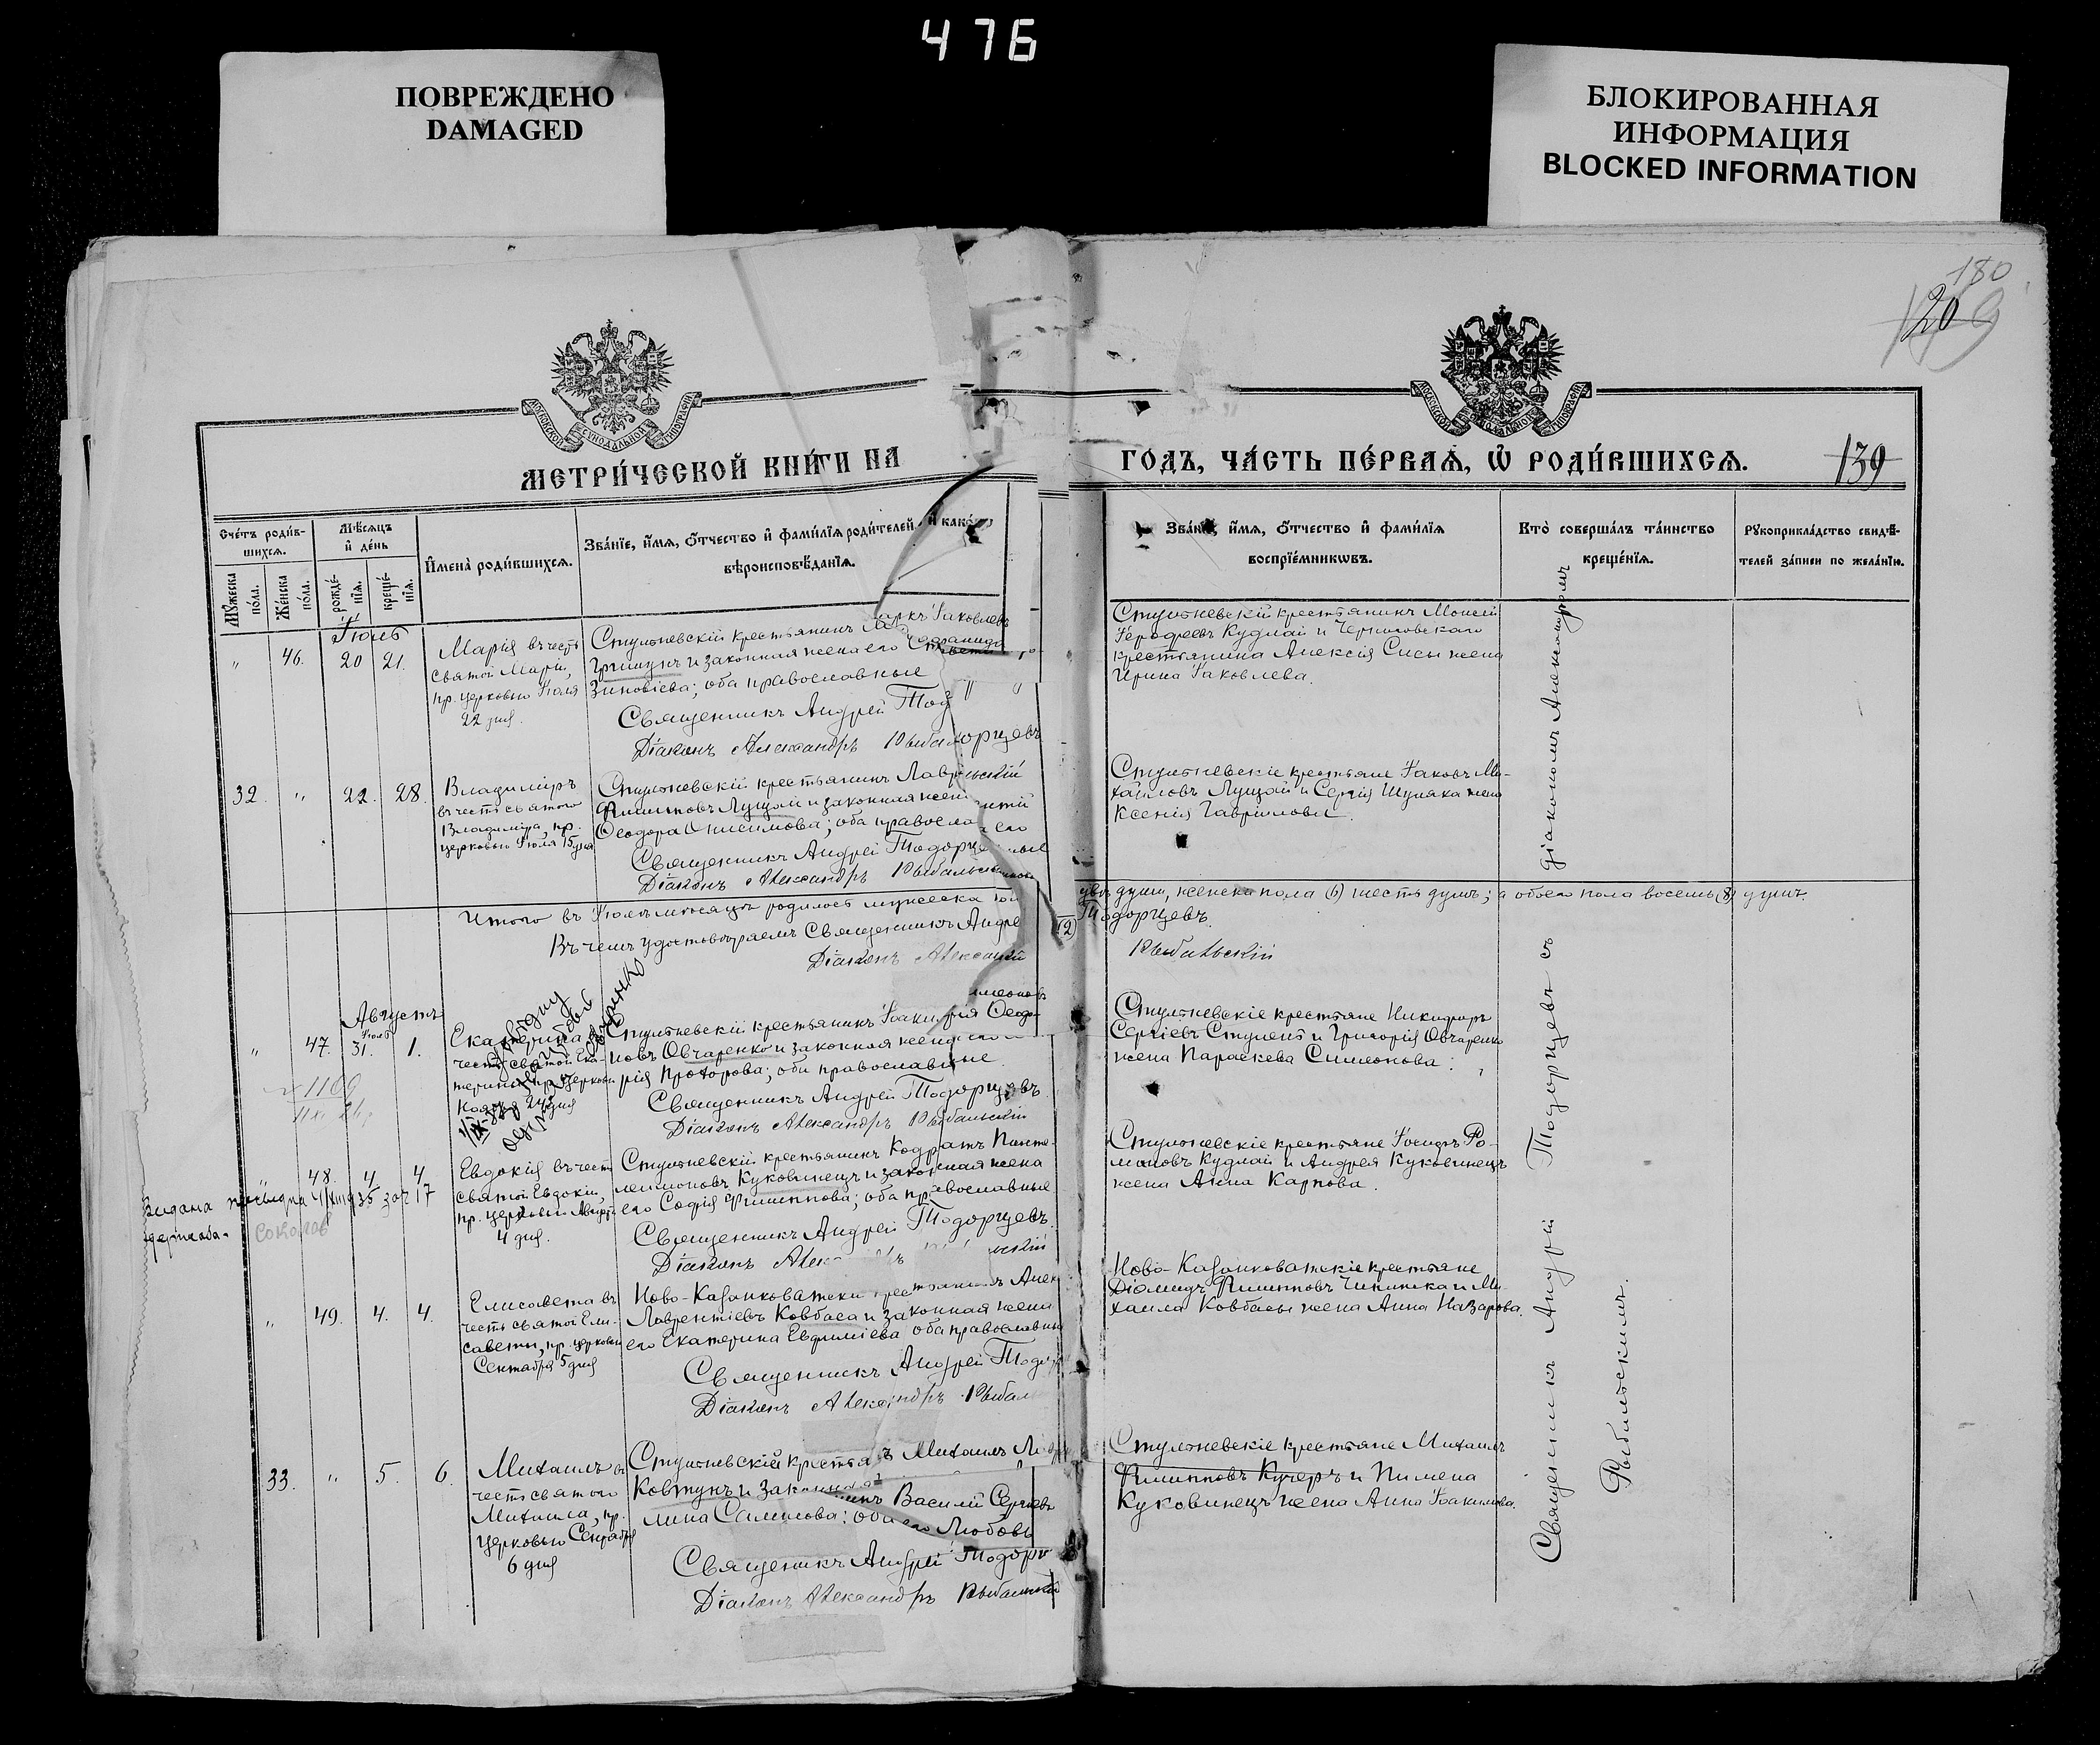 476
ПОВРЕЖДЕНО
DAMAGED
БЛОКИРОВАННАЯ
ИНФОРМАЦИЯ
BLOCKED INFORMATION
180
209
МЕТРИ́ЧЕСКОЙ КНИ́ГИ НА
ГОДЪ, ЧА́СТЬ ПЕ́РВАѦ, Ѡ РОДИ́ВШИХСѦ.
139
Сче́тъ роди́в-
шихсѧ.
Мѣ́сѧцъ
и҆ де́нь
И҆мена̀ роди́вшихсѧ.
Зва́нїе, и҆́мѧ, ѻ҆́тчество и҆ фами́лїѧ роди́телей, и҆ како́гѡ
вѣроисповѣ́данїѧ.
Мꙋ́жеска
по́ла.
Же́нска
по́ла.
рожде́-
нїѧ.
креще́-
нїѧ.
Зва́нїе, и҆́мѧ, ѻ҆́тчество и҆ фами́лїѧ
воспрїе́мникѡвъ.
Кто̀ соверша́лъ та́инство
креще́нїѧ.
Рꙋкоприкла́дство свидѣ́-
телей за́писи по жела́нїю.
Іюль
" 46. 20 21.
Марія въ честь
святой Маріи,
пр. церковью Іюля
22 дня.
Стульневскій крестьянинъ Маркъ Іаковлевъ
Гришунъ и законная жена его
Зиновіева; оба православные
Священникъ Андрей Тодорцевъ
Діаконъ Александръ Рыбальскій
Стульневскій крестьянинъ Моисей
Іерофеевъ Кудлай и Черниговскаго
крестьянина Алексія Сисы жена
Ирина Іаковлева.
32. " 22. 28.
Владиміръ
въ честь святого
Владиміра, пр.
церковью Іюля 15 дня
Стульневскій крестьянинъ
Филипповъ Луцай и законная жена
Ѳеодора Онисимова; оба православные
Священникъ Андрей Тодорцевъ
Діаконъ Александръ Рыбальскій
Стульневскіе крестьяне Іаковъ Ми-
хаиловъ Луцай и Сергія Шуляка жена
Ксенія Гавріилова.
Итого въ Іюлѣ мѣсяцѣ родилось мужеска пола (2)
двѣ души, женска пола (6) шесть душъ; а обоего пола восемь (8) душъ.
Въ чемъ удостовѣряемъ Священникъ Андрей
Тодорцевъ.
Діаконъ Александръ
Рыбальскій
Августъ
" 47. Іюль 31. 1.
№ 1100
Екатерина въ
честь святой Ека-
терины, пр. церковью
Ноября 24 дня
Стульневскій крестьянинъ
новъ Овчаренко и законная жена его
рія Прохорова; оба православные.
Священникъ Андрей Тодорцевъ
Діаконъ Александръ Рыбальскій
Стульневскіе крестьяне Никифоръ
Сергіевъ Ступень и Григорія Овчаренко
жена Параскева Симеонова.
48. 4 4.
Соколов
Евдокія въ честь
святой Евдокіи,
пр. церковью Августа
4 дня.
Стульневскій крестьянинъ Кодратъ Панте-
леимоновъ Куковинецъ и законная жена
его Софія Филиппова; оба православные
Священникъ Андрей Тодорцевъ.
Діаконъ
Стульневскіе крестьяне Іосифъ Ро-
мановъ Кудлай и Андрея Куковинецъ
жена Анна Карпова.
" 49. 4. 4.
Елисавета въ
честь святой Ели-
саветы, пр. церковью
Сентября 5 дня
Ново-Казанковатскій крестьянинъ
Лаврентіевъ Ковбаса и законная жена
его Екатерина Евфиміева оба православные
Священникъ Андрей
Діаконъ Александръ
Ново-Казанковатскіе крестьяне
Діомидъ Филипповъ Чипишка и Ми-
хаила Ковбасы жена Анна Назарова.
33. " 5. 6.
Михаилъ въ
честь святого
Михаила, пр.
церковью Сентября
6 дня
Стульневскій крестьянинъ Михаилъ
Ковтунъ и законная
Василій Сергіевъ
его Любовь
Священникъ Андрей
Діаконъ Александръ Рыбальскій
Стульневскіе крестьяне Михаилъ
Филипповъ Кучеръ и Пимена
Куковинецъ жена Анна Іоакимова.
Священникъ Андрій Тодорцевъ съ діакономъ Александромъ
Рыбальскимъ.